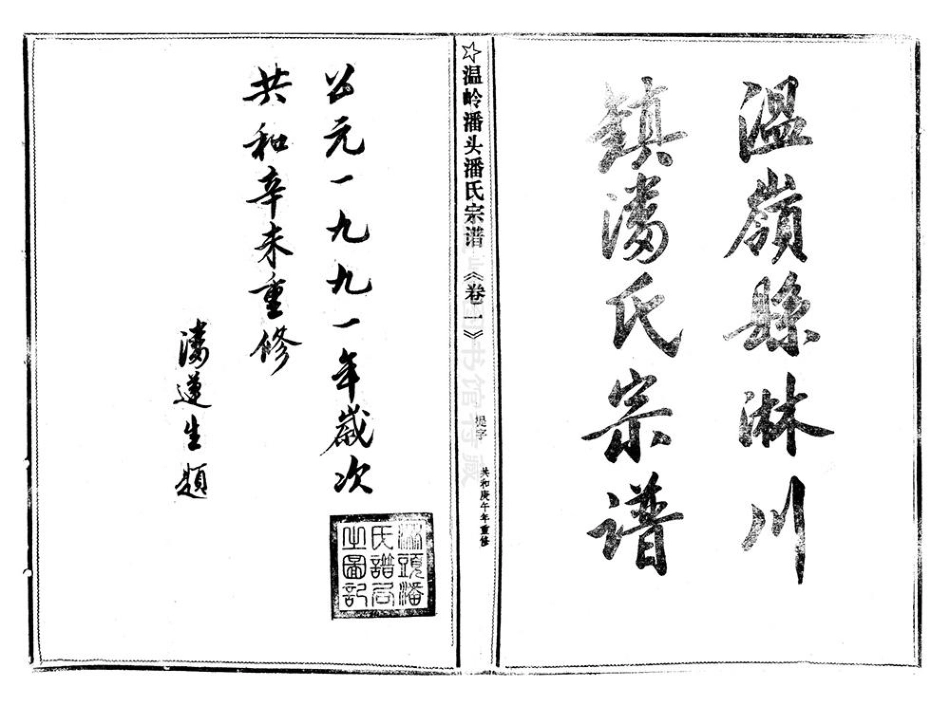 溫嶺縣淋川
鎮潘氏宗谱
☆温岭潘头潘氏宗谱《卷一》
共和庚午年重修
公元一九九一年歲次
共和辛未重修
潘蓮生題
潘氏譜局之圖記
书馆
藏